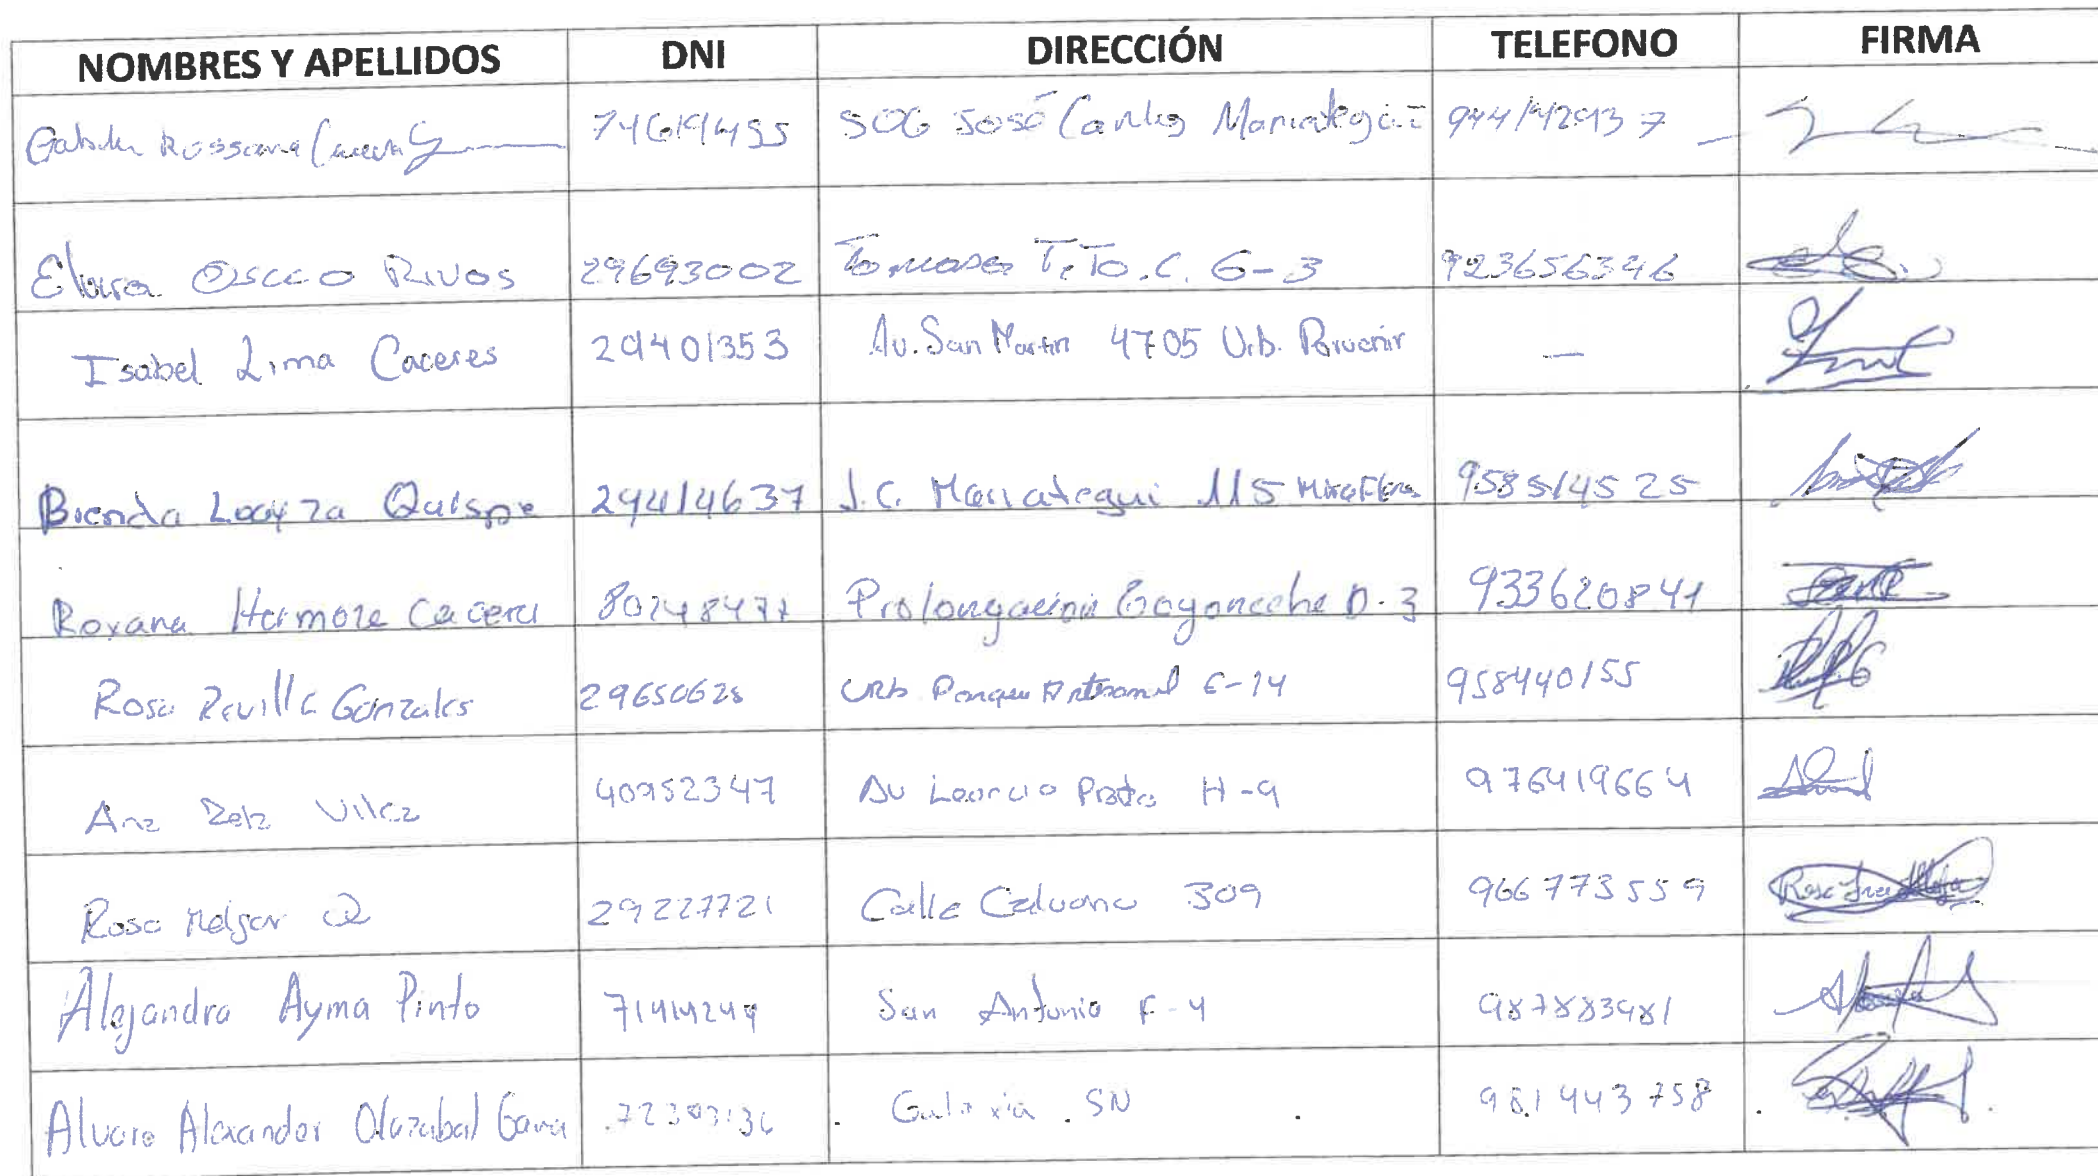 NOMBRES Y APELLIDOS DNI DIRECCIÓN TELEFONO FIRMA
Rossana 74619455 José Carlos Mariategui
Elvira Oscco Rivas 29693002 Tomasa TiTo.C. G-3 923656346
Isabel Lima Caceres 29401353 Av. San Martin 4705 Urb. Porvenir —
Brenda Loayza Quispe 29414637 J.C. Mariategui 115 Miraflores 958514525
Roxana Hermoza Caceres 80248477 Prolongacion Goyoneche D-3 933620841
Rosa Revilla Gonzales 29650625 Urb Parque Artesanal E-14 958440155
Ana Vilca 40952347 Av Leoncio Prado H-9 976419664
Rosa Melgar Q 29227721 Calle 309 966773559
Alejandra Ayma Pinto San Antonio F-4 987883981
Alvaro Alexander Olazabal Galaxia SN 981443758